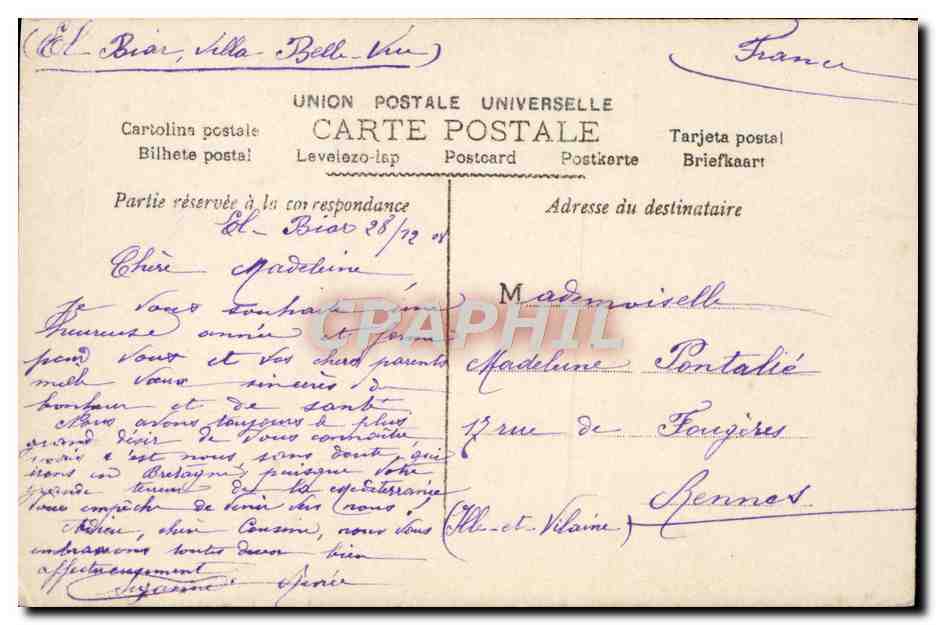 (El Biar, villa Belle-Vue)
France
UNION POSTALE UNIVERSELLE
CARTE POSTALE
Cartolina postale
Tarjeta postal
Bilhete postal
Levelezo-lap
Postcard
Postkarte
Briefkaart
Partie réservée à la correspondance
Adresse du destinataire
El-Biar 28/12 08
Chère Madeleine
Je vous souhaite une
heureuse année et forme
pour vous et vos chers parents
mille vœux sincères de
bonheur et de santé
Nous avons toujours le plus
grand désir de vous connaître,
mais c'est nous, sans doute, qui
irons en Bretagne, puisque votre
grande terreur de la Méditerranée
vous empêche de venir vers nous!
Adieu, chère Cousine, nous vous
embrassons toutes deux bien
affectueusement
Suzanne Renée
Mademoiselle
Madeleine Pontalié
17 rue de Fougères
Rennes
(Ille-et-Vilaine)
CPAPHIL